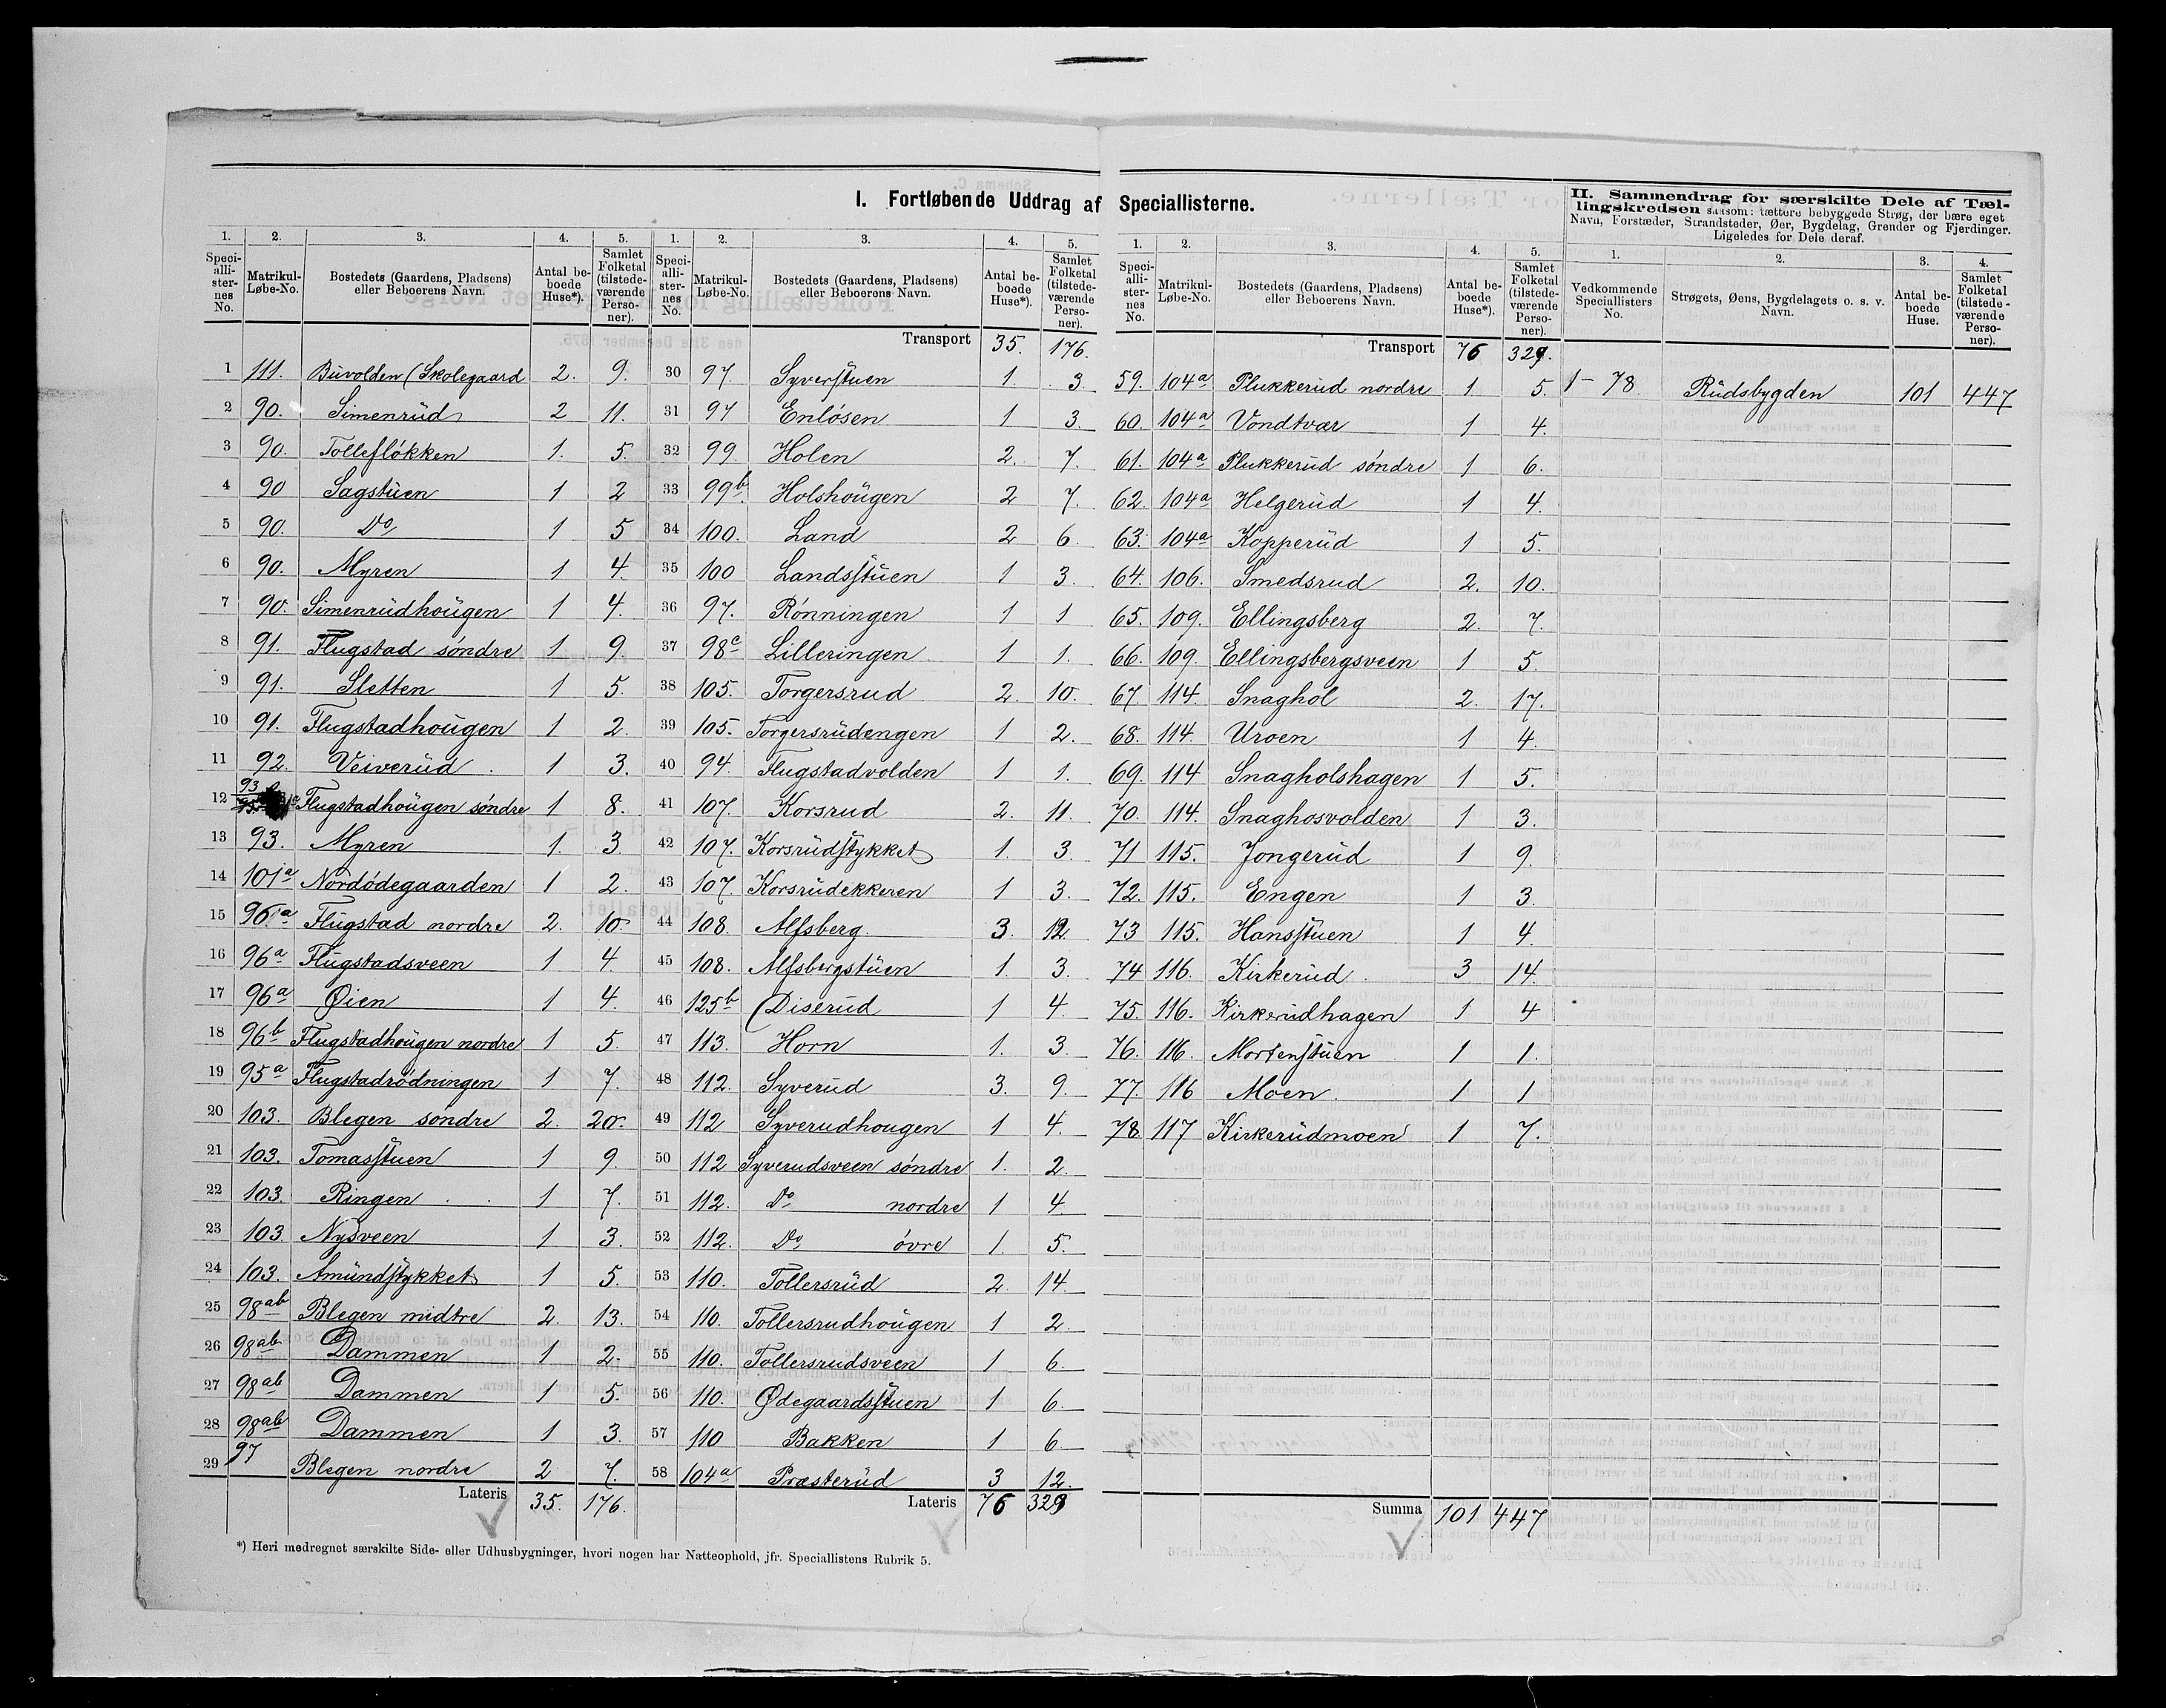 I. Fortløbende Uddrag af Speciallisterne.
1. 2. 3. 4. 5.
Speci-alli-ster-nes No. Matrikul-Løbe-No. Bostedets (Gaardens, Pladsens) eller Beboerens Navn. Antal be-boede Huse*). Samlet Folketal (tilstede-værende Perso-ner).
1 111. Buvolden (Skolegaard 2. 9.
2 90. Simenrud 2 11.
3 90. Tollefløkken 1. 5.
4 90 Sagstuen 1 2
5 90. Do 1 5
6 90. Myren 1 4.
7 90. Simenrudhougen 1 4.
8 91. Flugstad søndre 1 9.
9 91. Sletten 1 5.
10 91. Flugstadhougen 1 2.
11 92. Veiverud 1 3.
12 93 95 Flugstadhougen søndre 1 8.
13 93. Myren 1. 3
14 101a Nordødegaarden 1 2.
15 96a Flugstad nordre 2. 10
16 96a Flugstadsveen 1 4.
17 96a Øien 1 4.
18 96b Flugstadhougen nordre 1 5.
19 95a Flugstadrødningen 1 7.
20 103. Blegen søndre 2. 20.
21 103. Tomasstuen 1 9.
22 103. Ringen 1 7.
23 103. Nysveen 1 3.
24 103. Amundstykket 1 5.
25 98ab Blegen midtre 2. 13.
26 98ab Dammen 1 2.
27 98ab Dammen 1 5.
28 98ab Dammen 1 3.
29 97 Blegen nordre 2 7.
Lateris 35. 176.
*) Heri medregnet særskilte Side- eller Udhusbygninger, hvori nogen har Natteophold, jfr. Speciallistens Rubrik 5.
1. 2. 3. 4. 5.
Speci-alli-ster-nes No. Matrikul-Løbe-No. Bostedets (Gaardens, Pladsens) eller Beboerens Navn. Antal be-boede Huse*). Samlet Folketal (tilstede-værende Perso-ner).
Transport 35. 176.
30 97. Syverstuen 1. 3
31 97 Enløsen 1 3.
32 99 Holen 2. 7.
33 99b. Holshougen 2 7.
34 100. Land 2 6
35 100 Landsstuen 1 3.
36 97. Rønningen 1 1
37 98c Lilleringen 1 1.
38 105. Torgersrud 2. 10.
39 105. Torgersrudengen 1 2.
40 94. Flugstadvolden 1 1.
41 107. Korsrud 2. 11.
42 107. Korsrudstykket 1. 3.
43 107. Korsrudekkeren 1 3.
44 108. Alfsberg 3. 12.
45 108. Alfsbergstuen 1. 3.
46 125b (Diserud 1 4.
47 113. Horn 1. 3
48 112. Syverud 3. 9.
49 112 Syverudhougen 1 4.
50 112 Syverudsveen søndre 1. 2.
51 112. Do nordre 1 4.
52 112. Do øvre 1. 5.
53 110. Tollersrud 2 14.
54 110. Tollersrudhougen 1 2.
55 110. Tollersrudsveen 1 6.
56 110. Ødegaardsstuen 1 6.
57 110 Bakken 1 6
58 104a Præsterud 3 12.
Lateris 76 329
1. 2. 3. 4. 5.
Speci-alli-ster-nes No. Matrikul-Løbe-No. Bostedets (Gaardens, Pladsens) eller Beboerens Navn. Antal be-boede Huse*). Samlet Folketal (tilstede-værende Perso-ner).
Transport 76 329.
59. 104a Plukkerud nordre 1 5.
60. 104a Vondtvar 1 4.
61. 104a Plukkerud søndre 1 6.
62. 104a Helgerud 1 4.
63. 104a Kopperud 1 5.
64. 106. Smedsrud 2. 10.
65. 109. Ellingsberg 2. 7.
66. 109. Ellingsbergsveen 1 5.
67. 114. Snaghol 2. 17.
68. 114. Uroen 1 4.
69. 114 Snagholshagen 1 5.
70. 114. Snaghosvolden 1 3.
71 115. Jongerud 1 9.
72. 115. Engen 1 3.
73 115. Hansstuen 1 4.
74 116. Kirkerud 3 14.
75. 116. Kirkerudhagen 1 4
76. 116. Mortenstuen 1 1.
77. 116 Moen 1 1
78. 117 Kirkerudmoen 1 7.
Summa 101 447
II. Sammendrag for særskilte Dele af Tæl-
lingskredsen saasom: tættere bebyggede Strøg, der bære eget
Navn, Forstæder, Strandsteder, Øer, Bygdelag, Grender og Fjerdinger.
Ligeledes for Dele deraf.
1. 2. 3. 4.
Vedkommende Speciallisters No. Strøgets, Øens, Bygdelagets o. s. v. Navn. Antal be-boede Huse. Samlet Folketal (tilstede-værende Perso-ner).
1 - 78. Rudsbygden 101 447